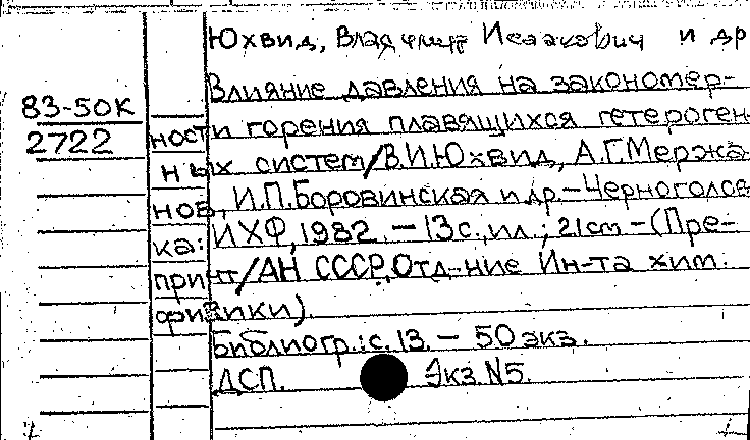 Юхвид, Владимир Исаакович и др
Влияние давления на закономер-
83-50К
2722
ности горения плавящихся гетероген
ных систем/В.И.Юхвид, А.Г.Мержа
нов, И.П.Боровинская и др.-Черноголов
ка: ИХФ, 1982. - 13 с., ил.; 21 см - (Пре-
принт/АН СССР, Отд-ние Ин-та хим.
физики).
Библиогр.: с. 13. - 50 экз.
ДСП. Экз. N5.